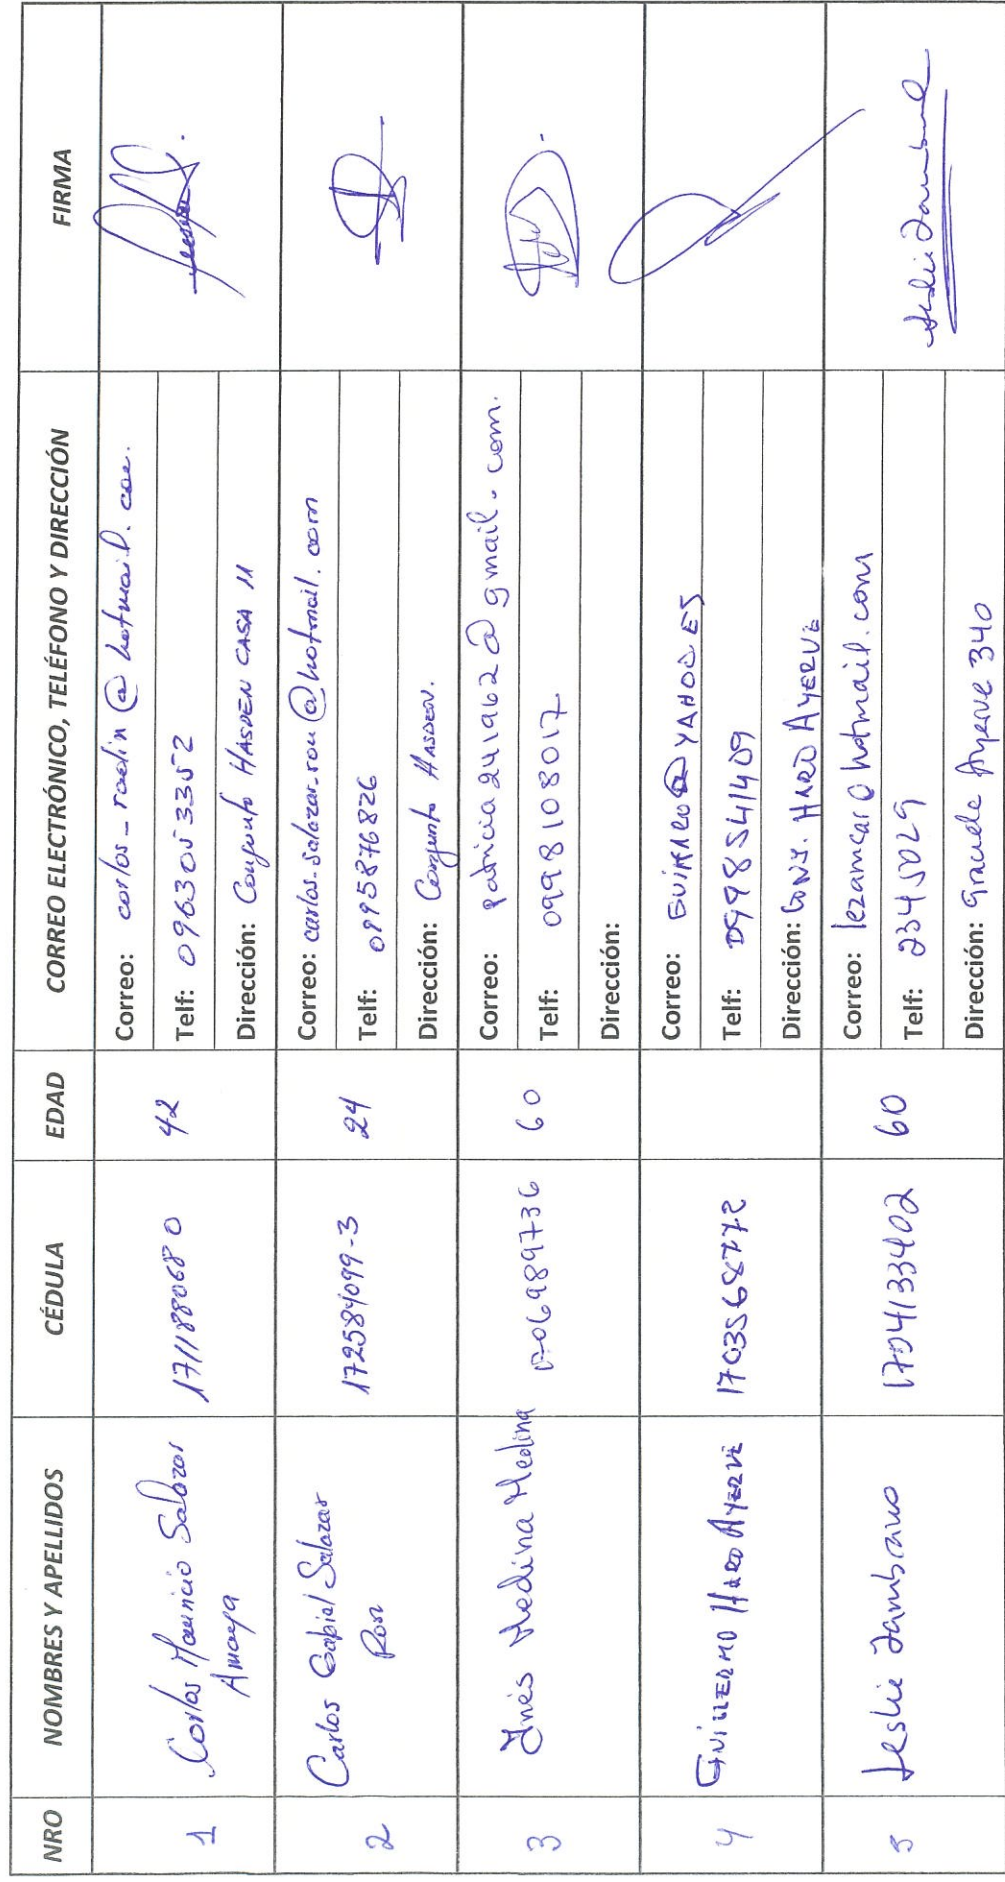 NRO NOMBRES Y APELLIDOS CÉDULA EDAD CORREO ELECTRÓNICO, TELÉFONO Y DIRECCIÓN FIRMA
1 Carlos Mauricio Salazar
Amaya
1711880680 42
Correo: carlos_roelin@hotmail.com.
Telf: 0963053352
Dirección: Conjunto HASDEN CASA 11
2 Carlos Gabriel Salazar
Ron
172584099-3 24
Correo: carlos.salazar.ron@hotmail.com
Telf: 0995876826
Dirección: Conjunto HASDEN.
3 Inés Medina Medina
1706989736 60
Correo: patricia241962@gmail.com.
Telf: 0998108017
Dirección:
4 GUILLERMO HARO AYERVE
1703568772
Correo: GUIHARO@YAHOO.ES
Telf: 0998541409
Dirección: CONJ. HARO AYERVE
5 Leslie Zambrano
1704133402 60
Correo: lezamcar@hotmail.com
Telf: 2345029
Dirección: Grande Ayerve 340
Leslie Zambrano